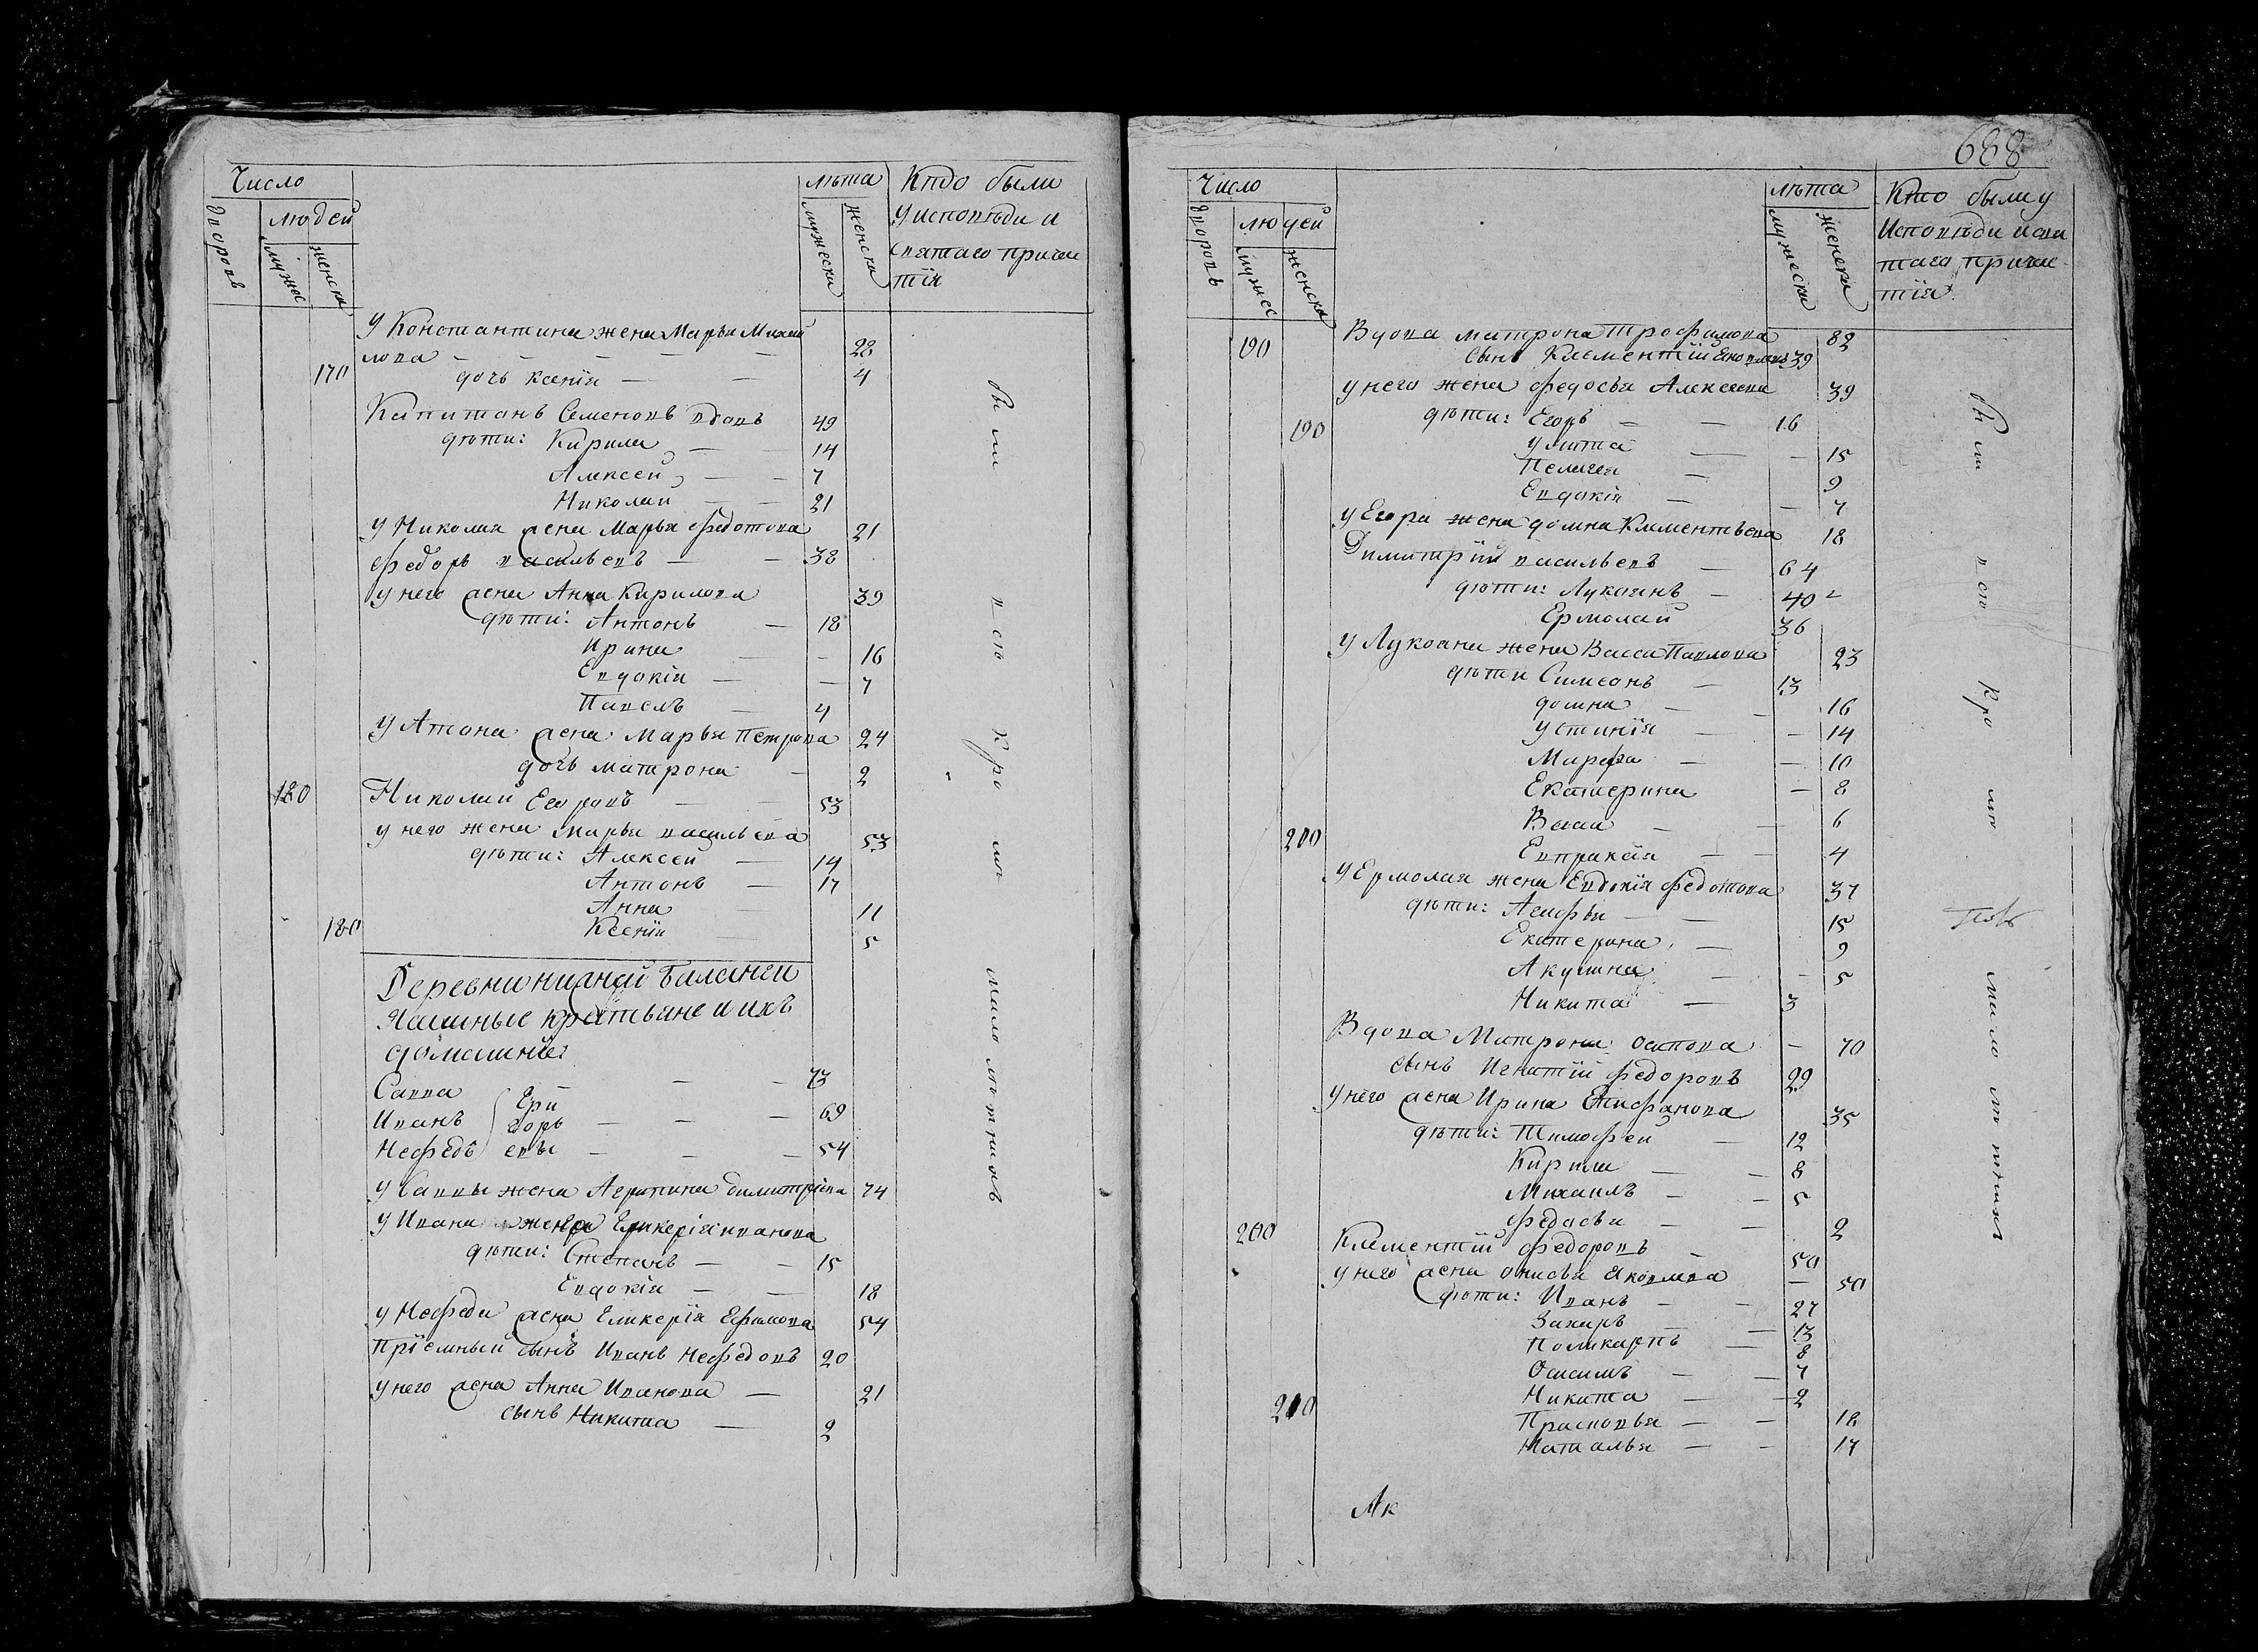 Число
людей
дворовъ
мужес
женска
лѣта
мужески
женска
Кто были
у исповѣди и
святаго прича
тія
У Константина жена Марья Михаи
лова 28
170 дочь Ксенія 4
Капитонъ Семеновъ вдовъ 49
дѣти: Кирила 14
Алексей 7
Николай 21
У Николая жена Марья Федотова 21
Федоръ Васильевъ 38
У него жена Анна Кирилова 39
дѣти: Антонъ 18
Ирина 16
Евдокія 7
Павелъ 4
У Атона жена Марья Петрова 24
дочь Матрона 2
180 Николай Егоровъ 53
У него жена Марья Васильева 53
дѣти: Алексей 14
Антонъ 17
Анна 11
180 Ксенія 5
Деревни нижней Баланги
Яшшные крестьяне и ихъ
домашніе:
Савва 73
Иванъ Ери 69
горь
Нефедъ евы 54
У Саввы жена Агрипина Димитріева 74
У Ивана жена Гликерія Иванова
дѣти: Степанъ 15
Евдокія 18
У Нефеда жена Гликерія Ефимова 54
Пріемный сынъ Иванъ Нефедовъ 20
У него жена Анна Иванова 21
сынъ Никита 2
Были всѣ кромѣ малолѣтнихъ
688
Число
людей
дворовъ
мужес
женска
лѣта
мужески
женска
Кто были у
Исповѣди и свя
таго прича
тія
Вдова Матрона Трофимова 82
190 сынъ Клементій Яковлевъ 39
У него жена Федосья Алексеева 39
дѣти: Егоръ 16
190 Улита 15
Пелагея 9
Евдокія 7
У Егора жена Домна Климентьева 18
Димитрій Васильевъ 64
дѣти: Лукоянъ 40
Ермолай 36
У Лукояна жена Васса Павлова 23
дѣти Симеонъ 13
Домна 16
Устинія 14
Марфа 10
Екатерина 8
Васса 6
200 Евпраксія 4
У Ермолая жена Евдокія Федотова 37
дѣти: Агафья 15
Екатерина 9
Акулина 5
Никита 3
Вдова Матрона Осипова 70
сынъ Игнатій Федоровъ 29
У него жена Ирина Епифанова 35
дѣти: Тимофей 12
Кирила 8
Михаилъ 5
Федосья 2
200 Клементій Федоровъ 50
У него жена Онисья Яковлева 50
дѣти: Иванъ 27
Захаръ 13
Поликарпъ 8
Онисимъ 7
Никита 2
210 Прасковья 18
Наталья 17
Были всѣ кромѣ малолѣтныхъ
Ак